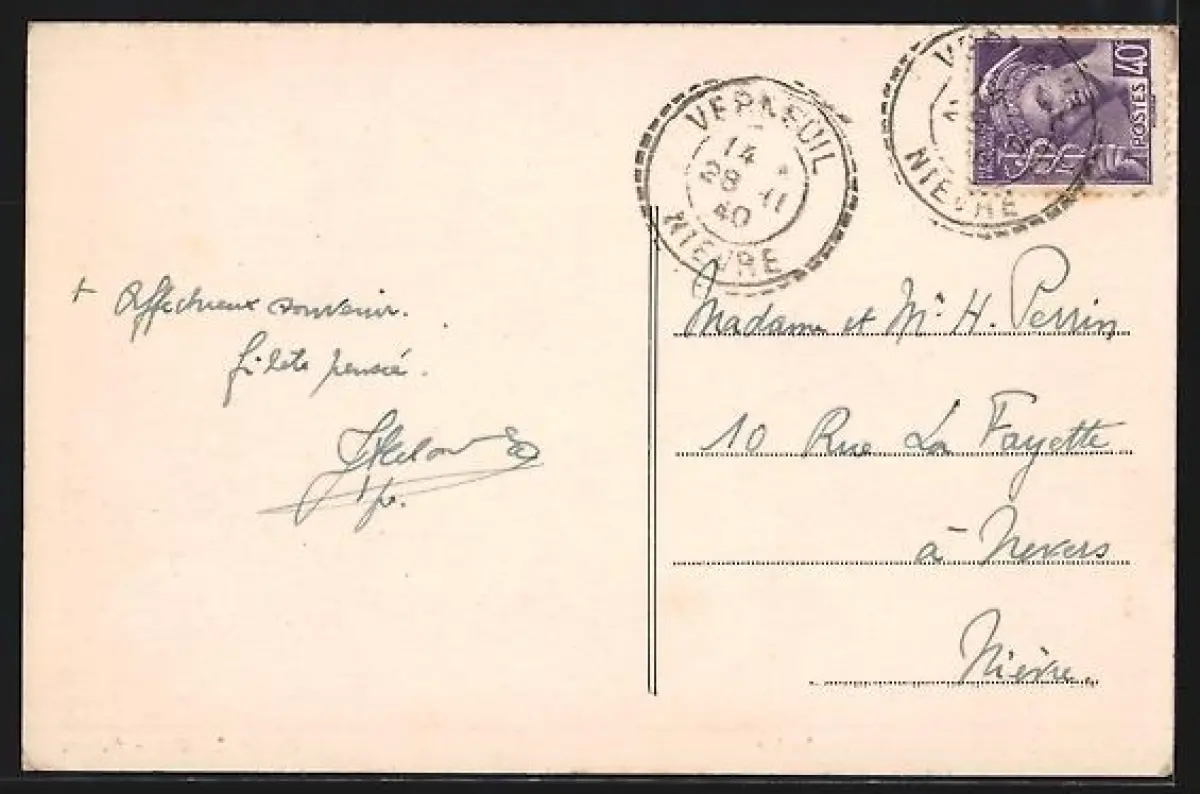 VERNEUIL
14
28 11
40
NIEVRE
NIEVRE
40c
POSTES
+ affectueux souvenir.
pensée.
Madame et Mr. H. Perrin
10 Rue La Fayette
à Nevers
Nièvre.